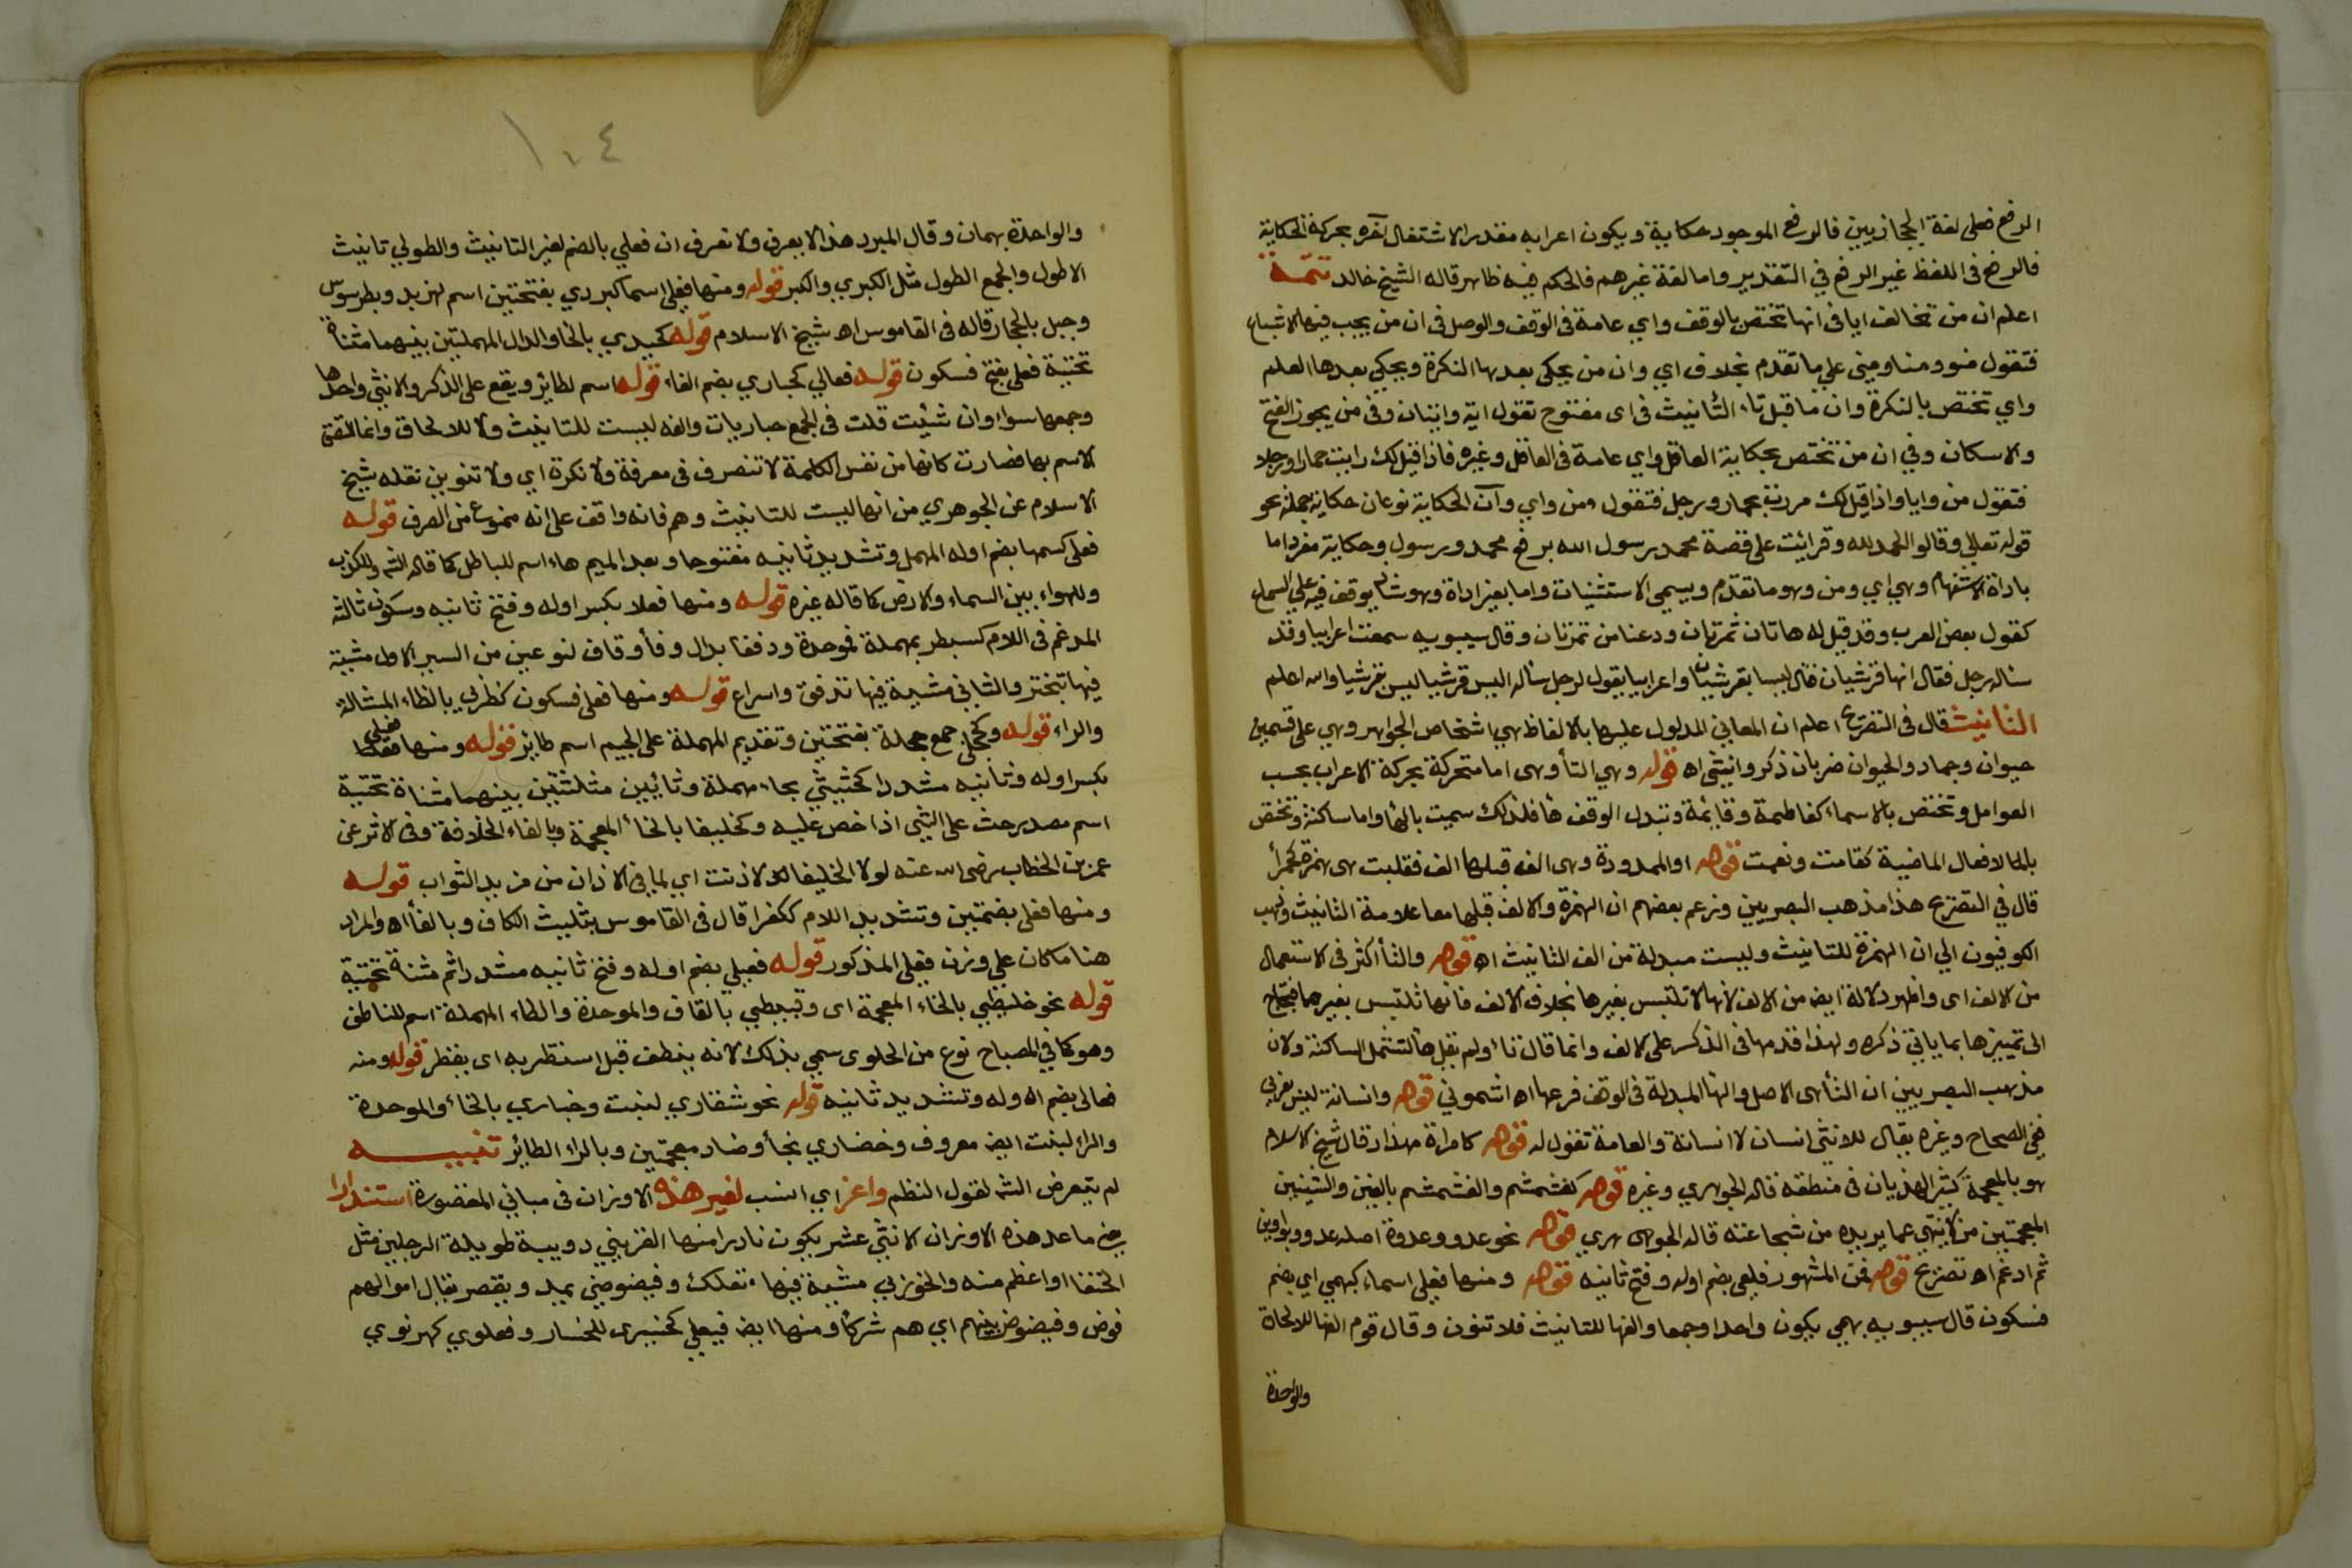 الرفع فعلى لغة الحجازيين فالرفع الموجود حكاية ويكون اعرابه مقدر الاشتغال آخره بحركة الحكاية
فالرفع فى اللفظ غير الرفع في التقدير واما لغة غيرهم فالحكم فيه ظاهر قاله الشيخ خالد تتمة
اعلم ان من تخالف ايا فى انها تختص بالوقف واي عامة فى الوقف والوصل فى ان من يجب فيها الاشباع
فتقول منو ومنا ومنى علي ما تقدم بخلاف اي وان من يحكى بعدها النكرة ويحكي بعدها العلم
واي تختص بالنكرة وان ما قبل تاء التأنيث فى اى مفتوح تقول اية وايتان وفى من يجوز الفتح
والاسكان وفي ان من تختص بحكاية العاقل واي عامة فى العاقل وغيره فاذا قيل لك رايت حمارا ورجلا
فتقول من وايا واذا قيل لك مررت بحمار ورجل فتقول من واي وان الحكاية نوعان حكاية جملة نحو
قوله تعالى وقالوا الحمد لله وقرائت على فصه محمد رسول الله برفع محمد ورسول وحكاية مفرد اما
باداة الاستفهام وهي اي ومن وهو ما تقدم ويسمى الاستثبات واما بغير اداة وهو شاذ يوقف فيه علي السماع
كقول بعض العرب وقد قيل له هاتان تمرتان ودعنا من تمرتان وقال سيبويه سمعت اعرابيا وقد
ساله رجل فقال انها قرشيان فقال ليسا بقرشيان واعرابيا يقول لرجل ساله اليس قرشيا ليس بقرشيا والله اعلم
التانيث قال فى التصريح اعلم ان المعاني المدلول عليها بالالفاظ هي اشخاص الجواهر وهي على قسمين
حيوان وجماد والحيوان ضربان ذكر وانثى اه قوله وهي التأ وهى اما متحركة بحركة الاعراب بحسب
العوامل وتختص بالاسماء كفاطمة وقائمة وتبدل الوقف هأ فلذلك سميت بالهأ واما ساكنة وتختص
بالافعال الماضية كقامت ونعمت قوله او الممدودة وهى الف قبلها الف فقلبت هى همزة كحمرأ
قال في التصريح هذا مذهب البصريين وزعم بعضهم ان الهمزة والالف قبلها معا علامة التانيث وذهب
الكوفيون الي ان الهمزة للتانيث وليست مبدلة من الف التانيث اه قوله والتأ اكثر فى الاستعمال
من الالف اى واظهر دلالة ايضا من الالف لانها لا تلتبس بغيرها بخلاف الالف فانها تلتبس بغيرها فيحتاج
الى تمييزها بما ياتي ذكره ولهذا قدمها فى الذكر على الالف وانما قال تأ ولم يقل هأ لتشمل الساكنة ولان
مذهب البصريين ان التأ هى الاصل والهأ المبدلة فى الوقف فرعها اه اشموني قوله وانسانة ليس بعربي
ففي الصحاح وغيره يقال للانثى انسان لا انسانة والعامة تقول له قوله كامراة مهذار قال شيخ الاسلام
هو بالمعجمة كثير الهذيان فى منطقه قاله الجوهري وغيره قوله كغشمشم والغشمشم بالغين والشينين
المعجمتين من لا ينتهي عما يريده من شجاعته قاله الجوهرى قوله نحو عدو وعدوة اصله عدوو بواوين
ثم ادغم اه تصريح قوله فمن المشهور فعلى بضم اوله وفتح ثانيه قوله ومنها فعلى اسماء كبهمي اي بضم
فسكون قال سيبويه بهمي يكون واحدا وجمعا والفها للتانيث فلا تنون وقال قوم الفها للالحاق
والواحدة
١٠٤
والواحدة بهمات وقال المبرد هذا لا يعرف ولا نعرف ان فعلي بالضم لغير التانيث والطولي تانيث
الاطول والجمع الطول مثل الكبري والكبر قوله ومنها فعلى اسما كبردي بفتحتين اسم نهر بد وبطرسوس
وجبل بالحجاز قاله فى القاموس اه شيخ الاسلام قوله كحيدي بالحا والدال المهملتين بينهما مثناة
تحتية فعلى بفتح فسكون قوله فعالي كحباري بضم الفاء قوله اسم لطائر ويقع على الذكر والانثى واحدها
وجمعها سواء وان شئت قلت فى الجمع حباريات والفه ليست للتانيث ولا للالحاق وانما
الاسم بها فصارت كانها من نفس الكلمة لا تنصرف فى معرفة ولا نكرة اي ولا تنوين نقله شيخ
الاسلام عن الجوهري من انها ليست للتانيث وهم فانه واقف على انه ممنوع من الصرف قوله
فعلى كسمهى بضم اوله المهمل وتشديد ثانيه مفتوحا وبعد الميم هاء اسم للباطل كما قاله الش وللكذب
وللهواء بين السماء والارض كما قاله غيره قوله ومنها فعلا بكسر اوله وفتح ثانيه وسكون ثالثه
المدغم فى اللام كسبطر بمهملة فموحدة ودفقا بدال وفأ وقاف لنوعين من السير الاول مشية
فيها تبختر والثاني مشية فيها تدفق واسراع قوله ومنها فعلى فسكون كظربي بالظاء المشالة
والراء قوله وكحجلى جمع حجلة بفتحتين وتقديم المهملة على الجيم اسم طائر قوله ومنها فعيلى
بكسر اوله وثانيه مشددا كحثيثي بحاء مهملة وثائين مثلثتين بينهما مثناة تحتية
اسم مصدر حث على الشي اذا حض عليه وكخليفا بالخأ المعجمة وبالفاء الخلافة وفى الاثر عن
عمر بن الخطاب رضى الله عنه لولا الخليفا لاذنت اي لما فى الاذان من مزيد الثواب قوله
ومنها فعلى بضمتين وتشديد اللام ككفرا قال فى القاموس بتثليث الكاف وبالفأ اه والمراد
هنا ما كان علي وزن فعلى المذكور قوله فعيلي بضم اوله وفتح ثانيه مشددا ثم مثناة تحتية
قوله نحو خليطي بالخاء المعجمة اى وقبيطي بالقاف والموحدة والطاء المهملة اسم للناطف
وهو كما في المصباح نوع من الحلوى سمي بذلك لانه ينطف قبل استضرابه اى يقطر قوله ومنه
فعالى بضم اوله وتشديد ثانيه قوله نحو شقاري لنبت وخباري بالخأ والموحدة
والراء لنبت ايضا معروف وخضاري بخأ وضاد معجمتين وبالراء الطائر تنبيه
لم يتعرض الش لقول النظم واعز اي انسب لغير هذه الاوزان فى مباني المقصورة استندارا
يعني ما عدا هذه الاوزان الاثني عشر يكون نادرا منها القرنبي دويبة طويلة الرجلين مثل
الخنفسا او اعظم منه والخوزلي مشية فيها تفكك وفيضوضي يمد ويقصر يقال اموالهم
فوضى وفيضوضى بينهم اي هم شركأ ومنها ايضا فيعلي كخيسرى للخسار وفعلوي كهرنوي